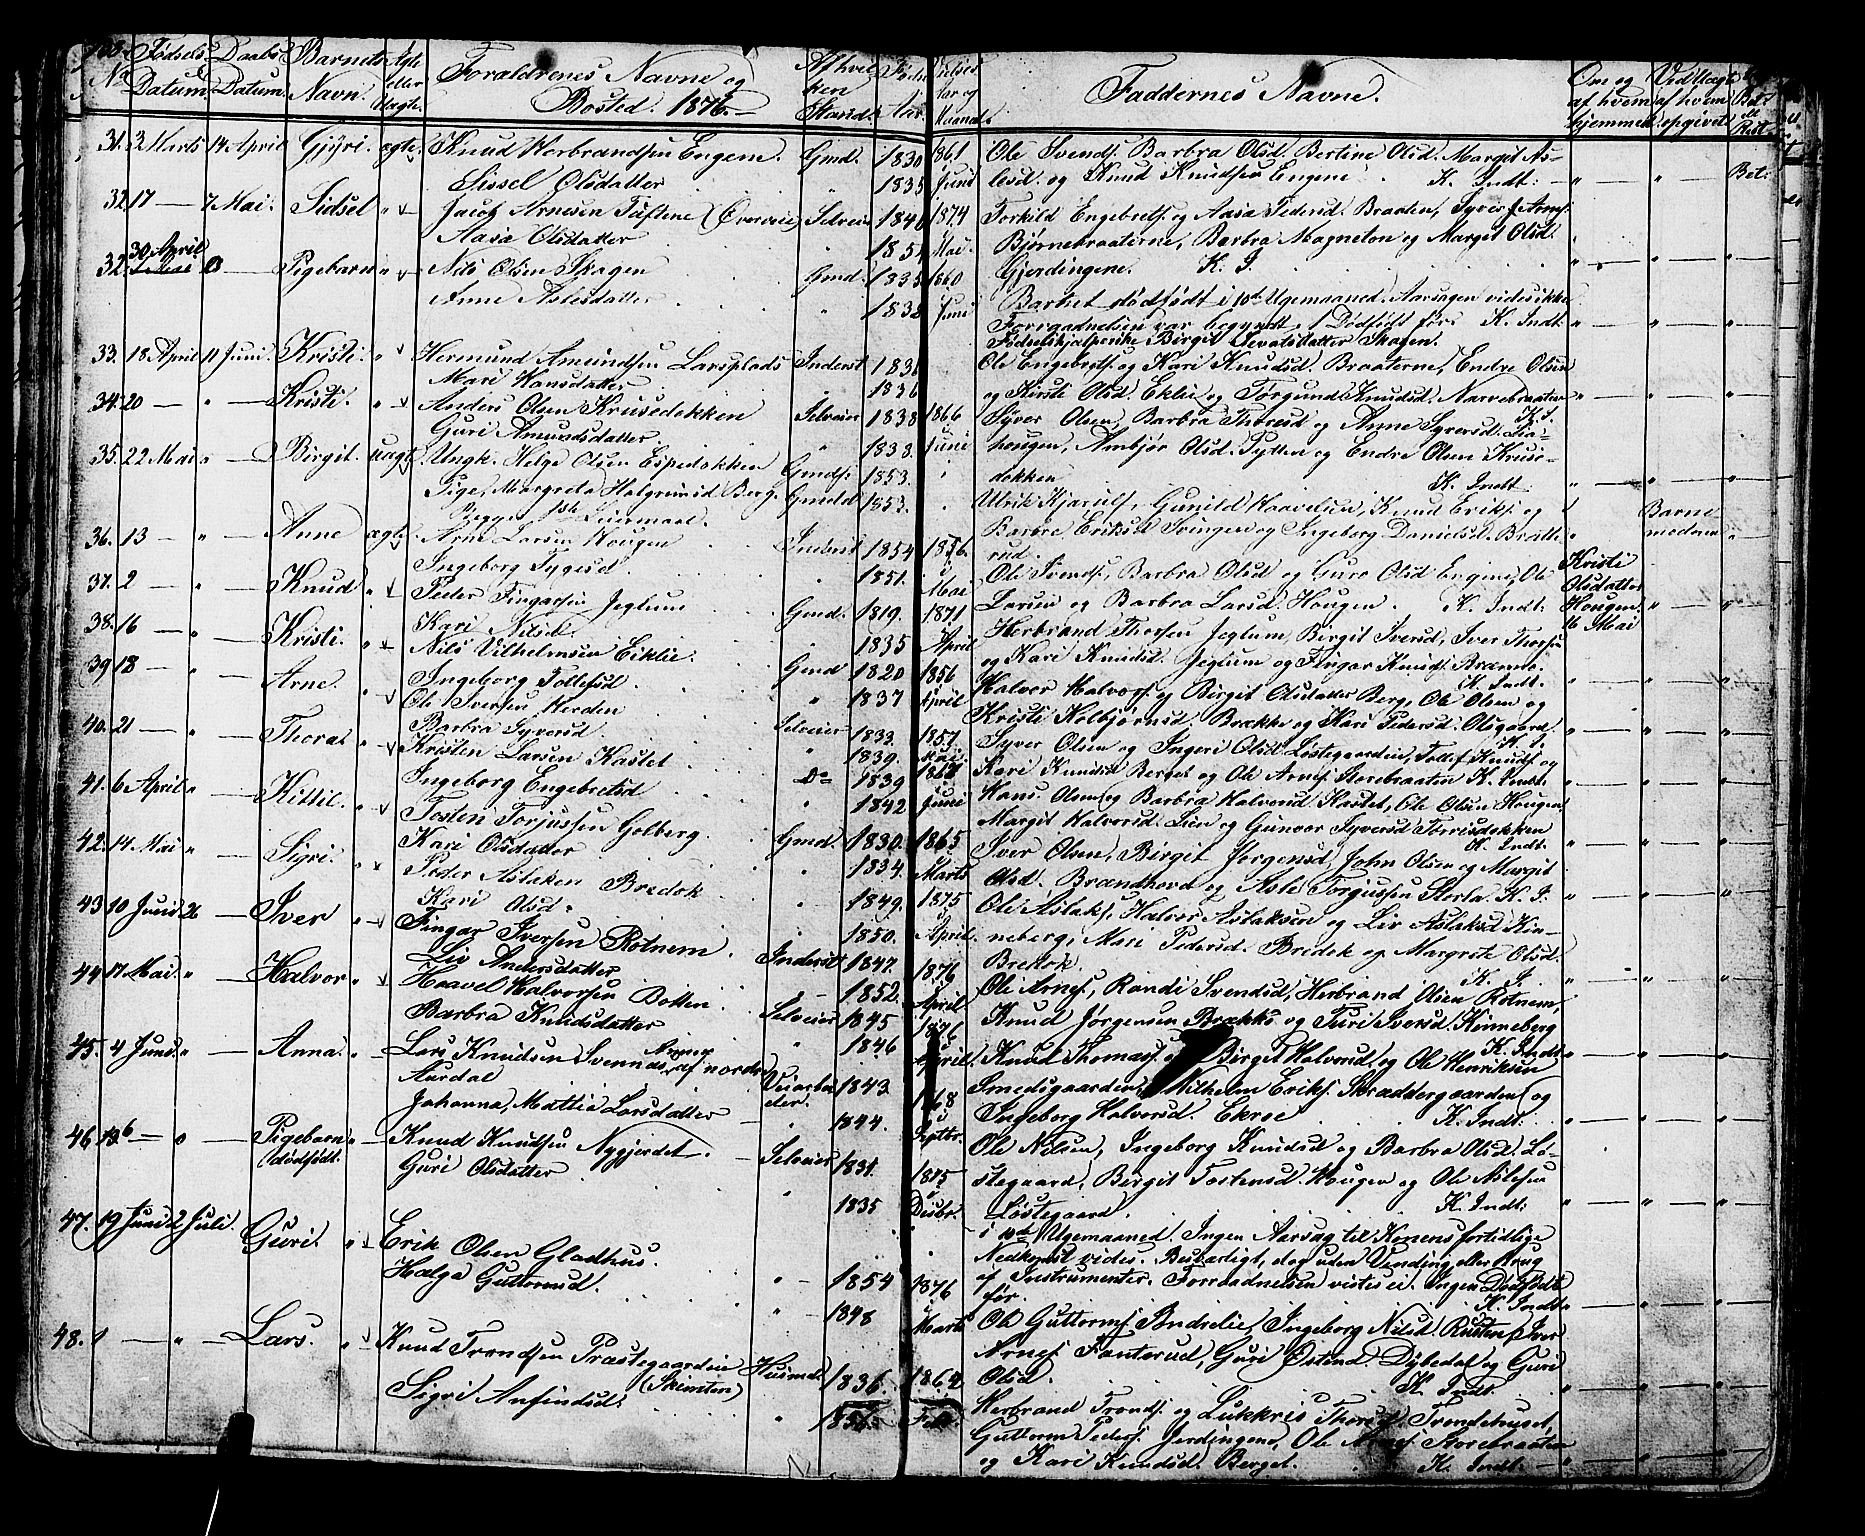 Fødsels Daabs Barnets Ægte Forældrenes Navne og Af hvil Fødsels
No Datum. Datum. Navn. eller Uægte. Bosted. 1876. ken Stand. Aar.
31. 3 Marts 14 April Gjyri. ægte Knud Herbrandsen Engene. Gmd. 1830 1861
Sissel Olsdatter 1835 Juni
32 17 — 7 Mai. Sidsel " Jacob Arnesen Tuftene Selveier 1840 1874
Aasa Olsdatter Mai.
30 April
32. 0 — Pigebarn " Nils Olsen Skagen Gmd. 1835 1860
Anne Aslesdatter " 1838 Juni
33. 18 April 11 Juni. Kristi. " Hermund Amundsen Larsplads Inderst
Mari Hansdatter " 1836
34. 20 — " — Kristi. " Anders Olsen Krusedokken Selveier 1838 1866
Guri Amundsdatter. " 1838. Juni
35. 22 Mai " — Birgit. uægte. Ungk. Helge Olsen Espedokken Gmds. 1853.
Pige, Margreta Halgrimsd. Berg. Gmdd 1853.
Begges 1ste Leiermaal.
36. 13 — " — Anne ægte. Arne Larsen Hougen Inderst 1854 1876.
Ingeborg Tygesd. 1851. Mai
37. 2 — " — Knud " Peder Fingarsen Jeglum Gmd. 1819. 1871
Kari Nilsd. " 1835 April
38. 16 — " — Kristi. " Nils Vilhelmsen Eiklie. Gmd 1820 1856
Ingeborg Tollefsd. " 1837 April
39 18 — " — Arne. " Ole Iversen Viken Selveier
Barbra Syversd. " 1839.
40. 21 — " — Thora. " Kristen Larsen Kastet Do 1839
Ingeborg Engebretsd " 1842 Juni
41. 6 April " — Kittil. " Tosten Torjussen Golberg. Gmd. 1830. 1865
Kari Olsdatter " 1834. Marts
42. 14 Mai " — Sigri. " Peder Aslaksen Bredok " 1849. 1875
Kari Olsd. " 1850. April
43 10 Juni 26 — Iver " Fingar Iversen Rotnem. Inderst 1847. 1876
Liv Andersdatter " 1852. April
44 17 Mai. " — Halvor " Haavel Halvorsen Botten Selveier 1845 1876
Barbra Knudsdatter " 1846 April
45. 4 Juni. " — Anna. " Lars Knudsen Svennes af nordre Veiarbei 1843 1868
Aurdal der.
Johanna, Mattia Larsdatter 1844. Septbr.
46. — 0 — Pigebarn " Knud Knudsen Nygjerdet. Selveier 1831. 1875
dødfødt. Guri Olsdatter " 1835 Decbr.
47. 19 Juni 2 Juli. Guri. " Erik Olsen Gladhus. " 1854 1876
Helga Guttormsd. " 1848 Marts
48. 1 — " — Lars. " Knud Trondsen Præstegaarden Husmd. 1836. 1864
(Skinsten)
Sigri Anfindsd. " Feb.
Faddernes Navne.
Om og af hvem hjemmed. Ved Uægte af hvem opgivet.
Ole Svends. Barbra Olsd. Bertine Olsd. Margit As-
lesd. og Knud Knudsen Engene. K. Indt: — " — " — Bet:
Torkild Engebrets. og Aasa Pedersd. Braaten, Syver Arns.
Bjørnebraaterne, Barbra Magneton og Margit Olsd.
Gjerdingene. K. I.
Barnet dødfødt i 10de Ugemaaned. Aarsagen vides ikke
Forraadnelsen var begyndt. 1 Dødfødt før. K. Indt.
Fødselshjælperske Birgit Sevatsdatter Skagen.
Ole Engebrets. og Kari Knudsd. Braaterne, Endre Olsen
og Kirsti Olsd. Eklie og Torgund Knudsd. Narvebraaten
K. I.
Syver Olsen, Barbra Thoresd og Anne Syversd. Lia-
hougen, Ambjør Olsd. Tytten og Endre Olsen Kruse-
dokken K. Indt:
Ulrik Kjærulf, Gunild Haavelsen, Knud Eriks. og
Barbra Eriksd Svingen og Ingeborg Danielsd. Bratte-
rud. Barne moderen
Ole Svends., Barbra Olsd og Guro Olsd Engene, Ole
Larsen og Barbra Larsd. Hougen. K. Indt:
Kristi Olsdatter Hougen 16 Mai
Herbrand Thorsen Jeglum, Birgit Iversd, Iver Thorsen
og Kari Knudsd. Jeglum og Fingar Knuds. Bramo.
K. Indt.
Halvor Halvors. og Birgit Olsdatter Berg, Ole Olsen og
Kristi Kolbjørnsd. Brække og Kari Pedersd. Olsgaard.
K. I.
Syver Olsen og Ingeri Olsd Løstegaarden, Tollef Knuds. og
Kari Knudsd Berget og Ole Arnes. Storebraaten K. Indt.
Hans Olsen og Barbra Halvorsd Kastet, Ole Olsen Hougen
Margit Halvorsd. Lien og Gunvor Syversd Torrisdokken
K. Indt.
Iver Olsen, Birgit Jørgensd, John Olsen og Margit
Olsd. Brændhovd og Asle Torgussen Storla. K. I.
Ole Aslaks., Halvor Aslaksen og Liv Aslaksd Kin-
neberg, Mari Pedersd. Bredok og Margrete Olsd.
Bredok. K. I.
Ole Arnes., Randi Svendsd, Herbrand Olsen Rotnem,
Knud Jørgensen Brække og Turi Iversd. Kinneberg
K. Indt.
Knud Thomas. og Birgit Halvorsd, og Ole Henriksen
Smedsgaarden, Vilhelm Eriks. Skræddergaarden og
Ingeborg Halvorsd. Ekroe K. Indt:
Ole Nilsen, Ingeborg Knudsd og Barbra Olsd. Lø-
stegaard, Birgit Tostensd. Hougen og Ole Aslesen
Løstegaard. K. Indt:
i 10de Ugemaaned. Ingen Aarsag til Konens fortidlige
Nedkomst vides. Besvarligt, dog uden Vending eller Brug
af Instrumenter. Forraadnelsen vistes ei. Ingen Dødfødt
før. K. Indt.
Ole Guttorms. Sndrelie, Ingeborg Nilsd. Rusten, Iver
Arnes. Fanterud, Guri Østensd. Dybedal og Guri
Olsd. K. Indt.
Herbrand Tronds. og Lukkris Thorsd. Trondehuset,
Guttorm Peders. Jerdingene, Ole Arnes. Storebraaten
og Kari Knudsd. Berget. K. Indt: